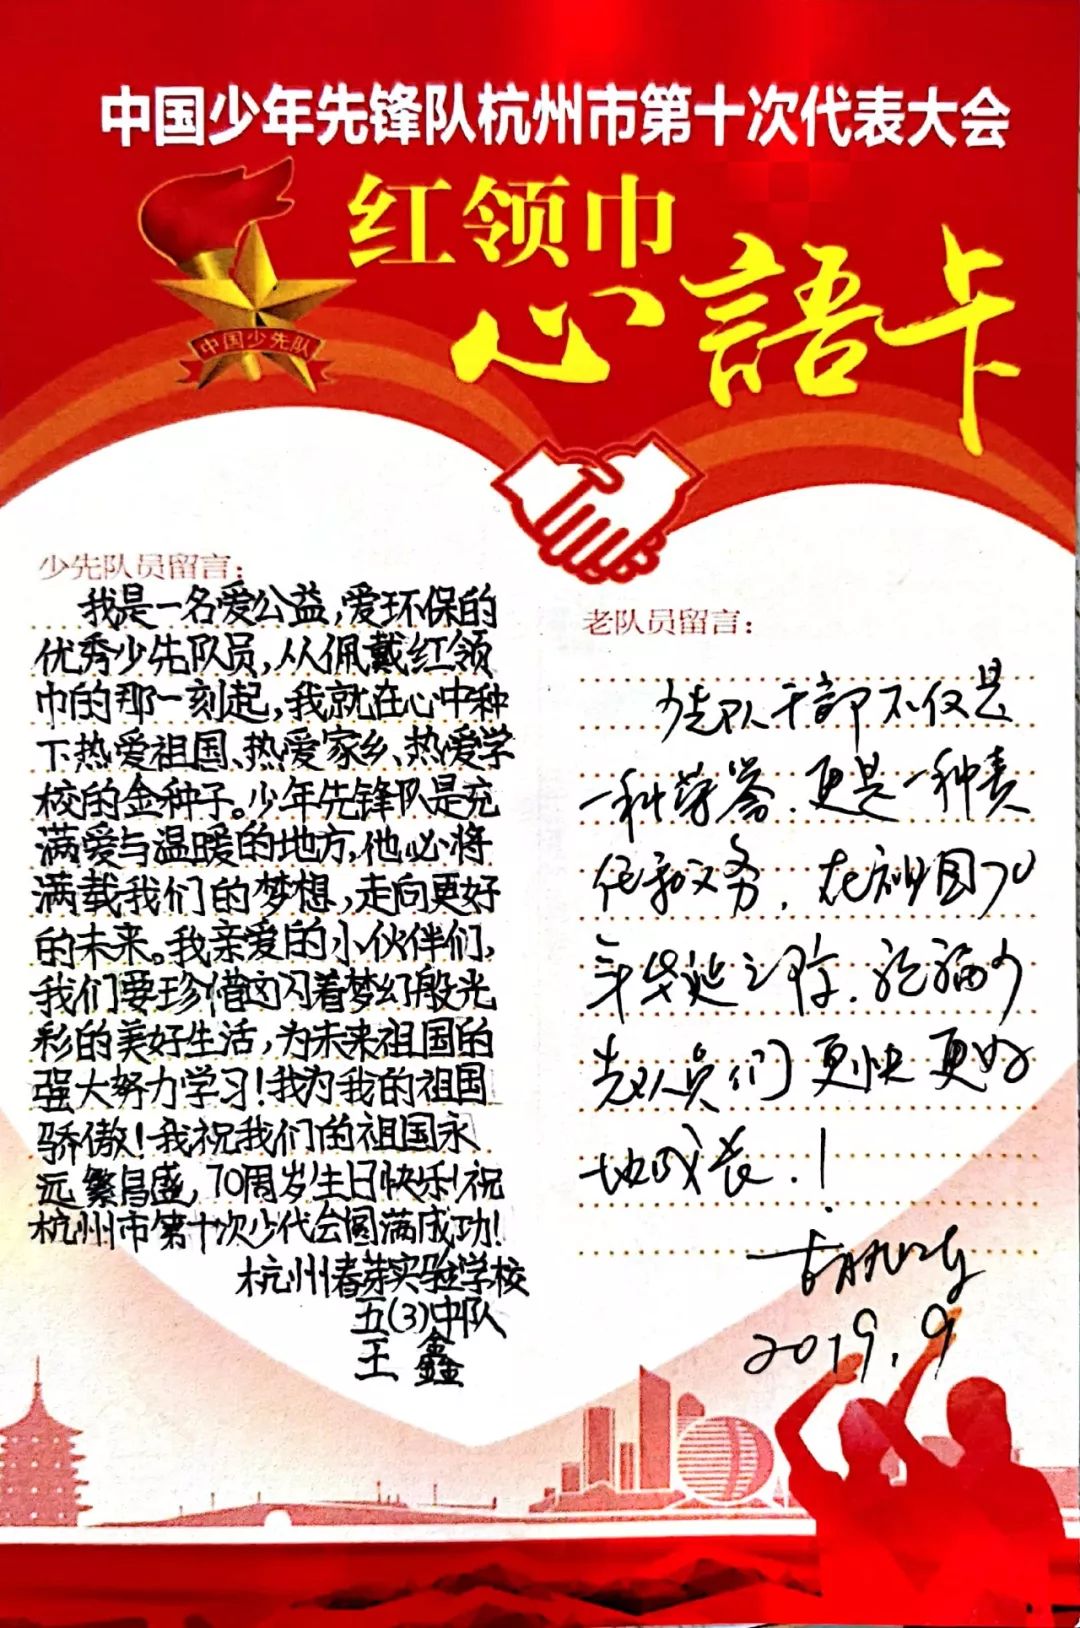 中国少年先锋队杭州市第十次代表大会
红领巾
心語卡
中国少先队
少先队员留言：
我是一名爱公益,爱环保的
优秀少先队员,从佩戴红领
巾的那一刻起,我就在心中种
下热爱祖国、热爱家乡、热爱学
校的金种子。少年先锋队是充
满爱与温暖的地方,他必将
满载我们的梦想,走向更好
的未来。我亲爱的小伙伴们,
我们要珍惜这闪着梦幻般光
彩的美好生活,为未来祖国的
强大努力学习!我为我的祖国
骄傲!我祝我们的祖国永
远繁昌盛,70周岁生日快乐!祝
杭州市第十次少代会圆满成功!
杭州春芽实验学校
五(3)中队
王鑫
老队员留言：
少先队干部不仅是
一种荣誉.更是一种责
任和义务.在祖国70
年华诞之际.祝福少
先队员们更快更好
地成长.!
2019.9